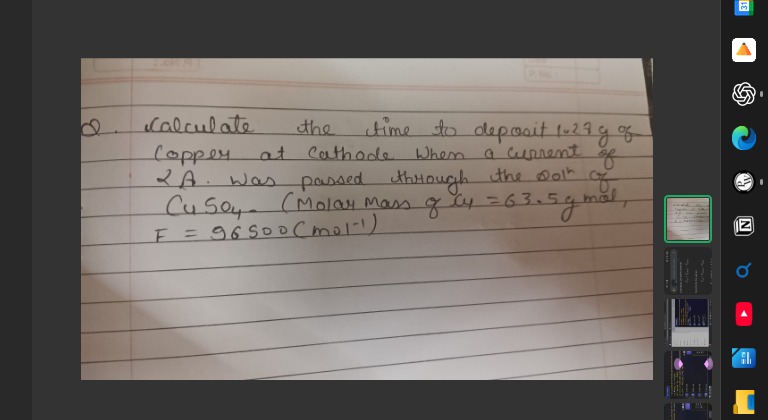 Q. Calculate the time to deposit 1.27g of
Copper at Cathode When a current of
2A. was passed through the soln of
CuSO4. (Molar Mass of Cu = 63.5g mol,
F = 96500 C mol-1)
31